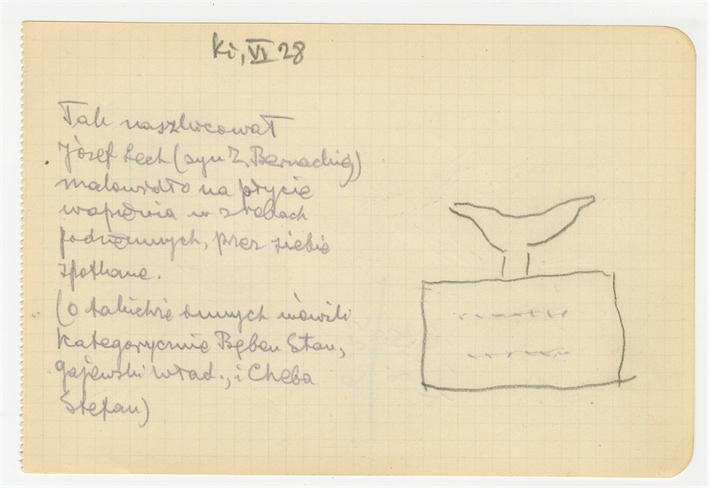 Ki, VI 28
Tak naszkicował
Józef Lech (syn Z. Bernadkię)
malowidło na płycie
wapienia w zrobach
podziemnych, przez siebie
spotkane.
(o takichże innych mówili
kategorycznie Bęben Stan,
Gajewski Wład., i Cheba
Stefan)